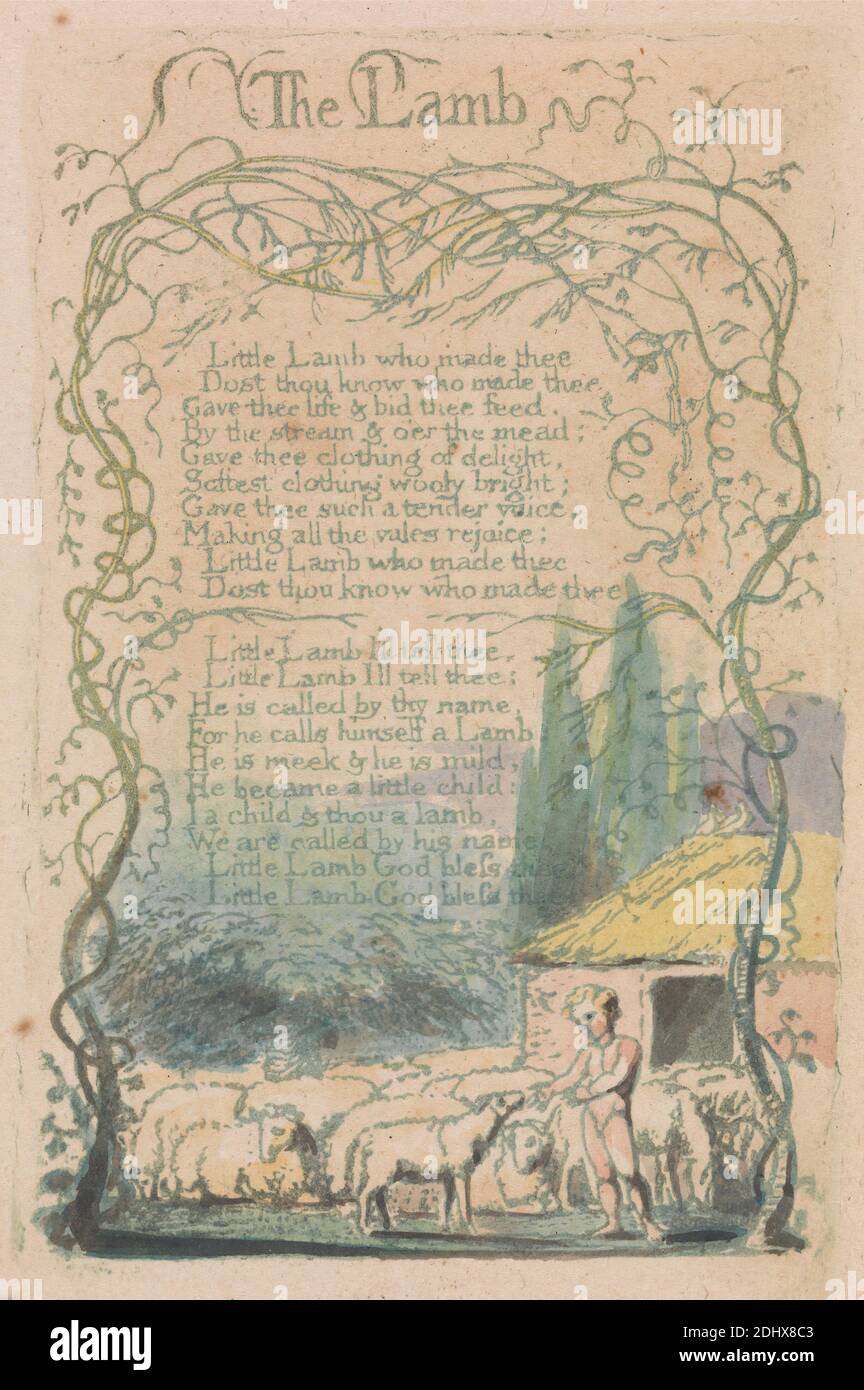 The Lamb
Little Lamb who made thee
Dost thou know who made thee
Gave thee life & bid thee feed.
By the stream & o'er the mead;
Gave thee clothing of delight,
Softest clothing wooly bright;
Gave thee such a tender voice,
Making all the vales rejoice;
Little Lamb who made thee
Dost thou know who made thee
Little Lamb thee,
Little Lamb Ill tell thee;
He is called by thy name,
For he calls himself a Lamb:
He is meek & he is mild,
He became a little child:
I a child & thou a lamb,
We are called by his name,
Little Lamb God bleſs thee,
Little Lamb God bleſs thee,
alamy
alamy
alamy
Image ID: 2DHX8C3
www.alamy.com